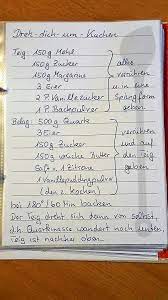 Dreh-dich-um-Kuchen
Teig: 150g Mehl
150g Zucker
150g Margarine
3 Eier
2 P. Vanillezucker
1 P. Backpulver
alles
verrühren
u. in eine
Springform
geben
Belag: 500 g Quark
3 Eier
150g Zucker
150g weiche Butter
Saft v. 1 Zitrone
1 Vanillepuddingpulver
(den z. kochen)
verrühren
und auf
den Teig
geben
bei 180° 60 Min backen
Der Teig dreht sich dann von selbst,
d.h. Quarkmasse wandert nach unten
Teig ist nachher oben.